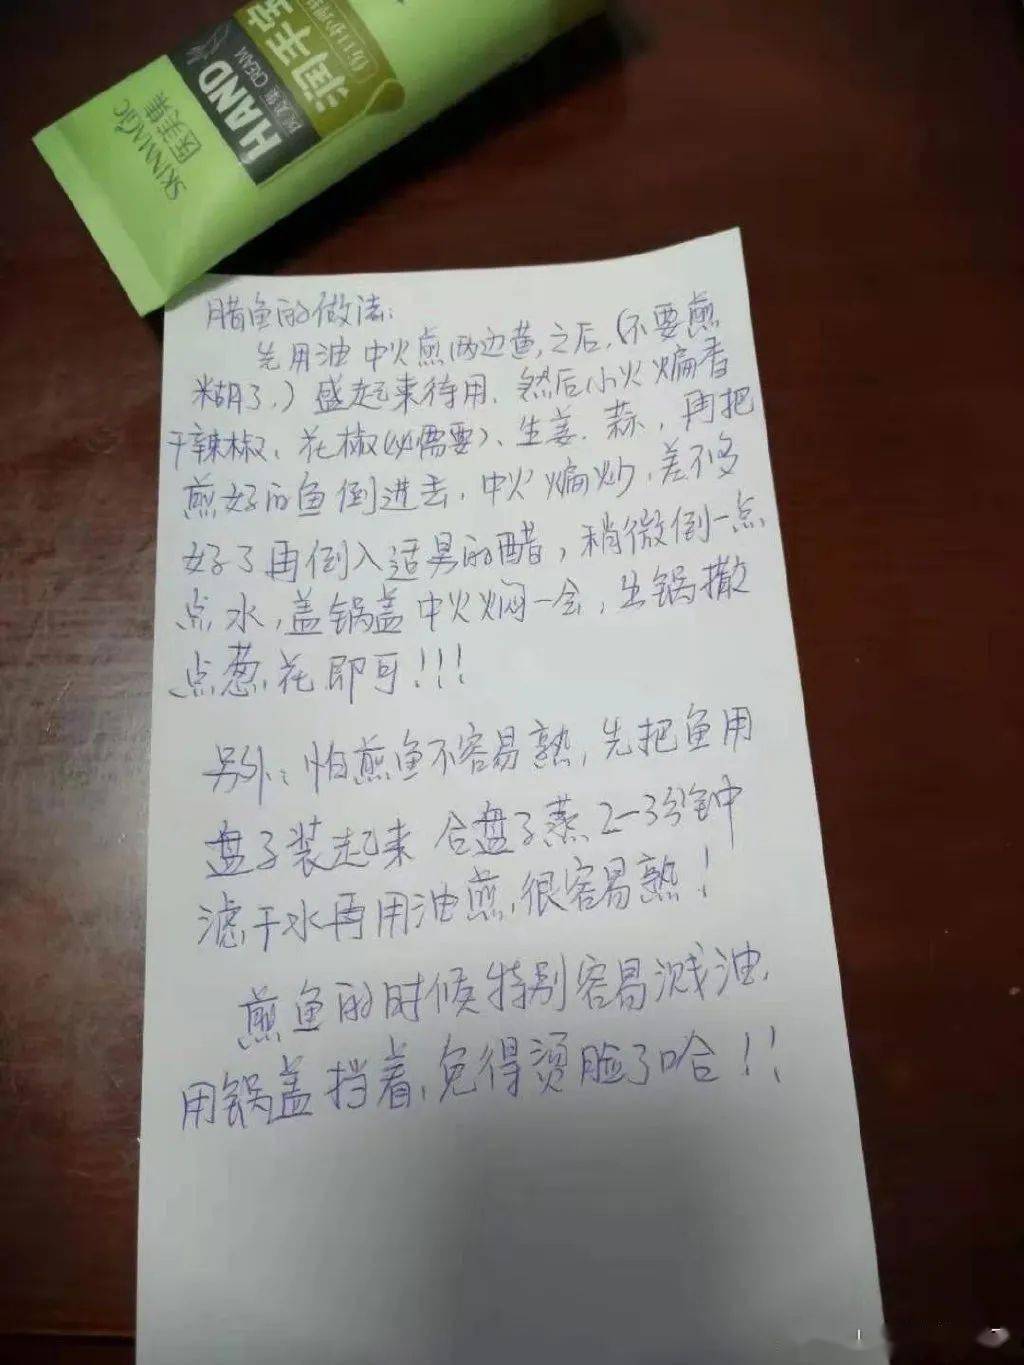 SKINMAGIC
医美集
HAND
CREAM
润手霜
腊鱼的做法:
先用油中火煎两边黄,之后,(不要煎
糊了,)盛起来待用,然后小火煸香
干辣椒、花椒(必需要)、生姜、蒜,再把
煎好的鱼倒进去,中火煸炒,差不多
好了再倒入适量的醋,稍微倒一点
点水,盖锅盖中火焖一会,出锅撒
点葱花即可!!!
另外:怕煎鱼不容易熟,先把鱼用
盘子装起来 合盘子蒸2-3分钟
滤干水再用油煎,很容易熟!
煎鱼的时候特别容易溅油,
用锅盖挡着,免得烫脸了哈!!